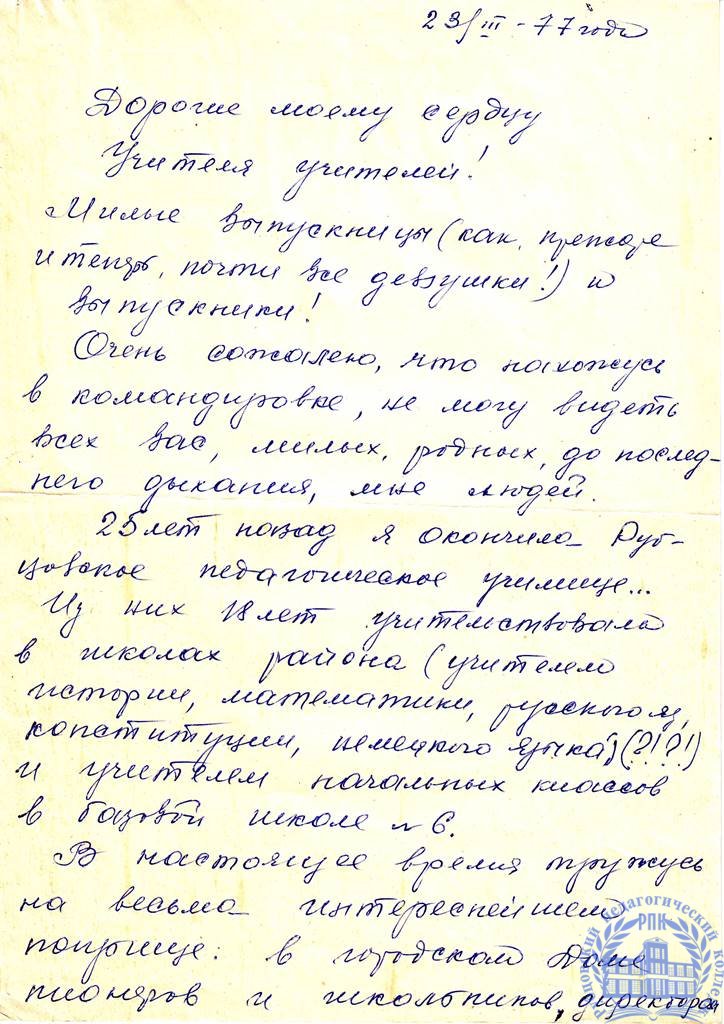 23/III - 77 года
Дорогие моему сердцу
Учителя учителей!
Милые выпускницы (как, прежде
и теперь, почти все девушки!) и
выпускники!
Очень сожалею, что нахожусь
в командировке, не могу видеть
всех вас, милых, родных, до послед-
него дыхания, мне людей.
25 лет назад я окончила Руб-
цовское педагогическое училище...
Из них 18 лет учительствовала
в школах района (учителем
истории, математики, русского яз,
конституции, немецкого языка) (?!?!)
и учителем начальных классов
в базовой школе № 6.
В настоящее время тружусь
на весьма интереснейшем
поприще: в городском Доме
пионеров и школьников, директором
педагогический
РПК